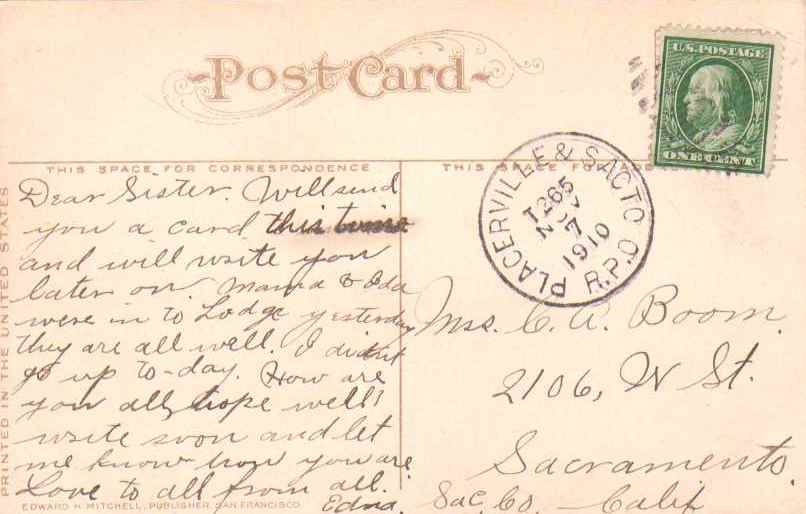 Post Card
U.S. POSTAGE
ONE CENT
THIS SPACE FOR CORRESPONDENCE
THIS SPACE FOR
PLACERVILLE & SACTO
T.265
NOV
7
1910
R.P.O
Dear Sister. Will send
you a card this time
and will write you
later on. Mama & Ida
were in to Lodge yesterday
they are all well. I didn't
go up to-day. How are
you all, hope well!
write soon and let
me know how you are
Love to all from all.
Edna.
Mrs. C. A. Boom.
2106, N St.
Sacramento.
Sac. Co. Calif
PRINTED IN THE UNITED STATES
EDWARD H. MITCHELL, PUBLISHER, SAN FRANCISCO